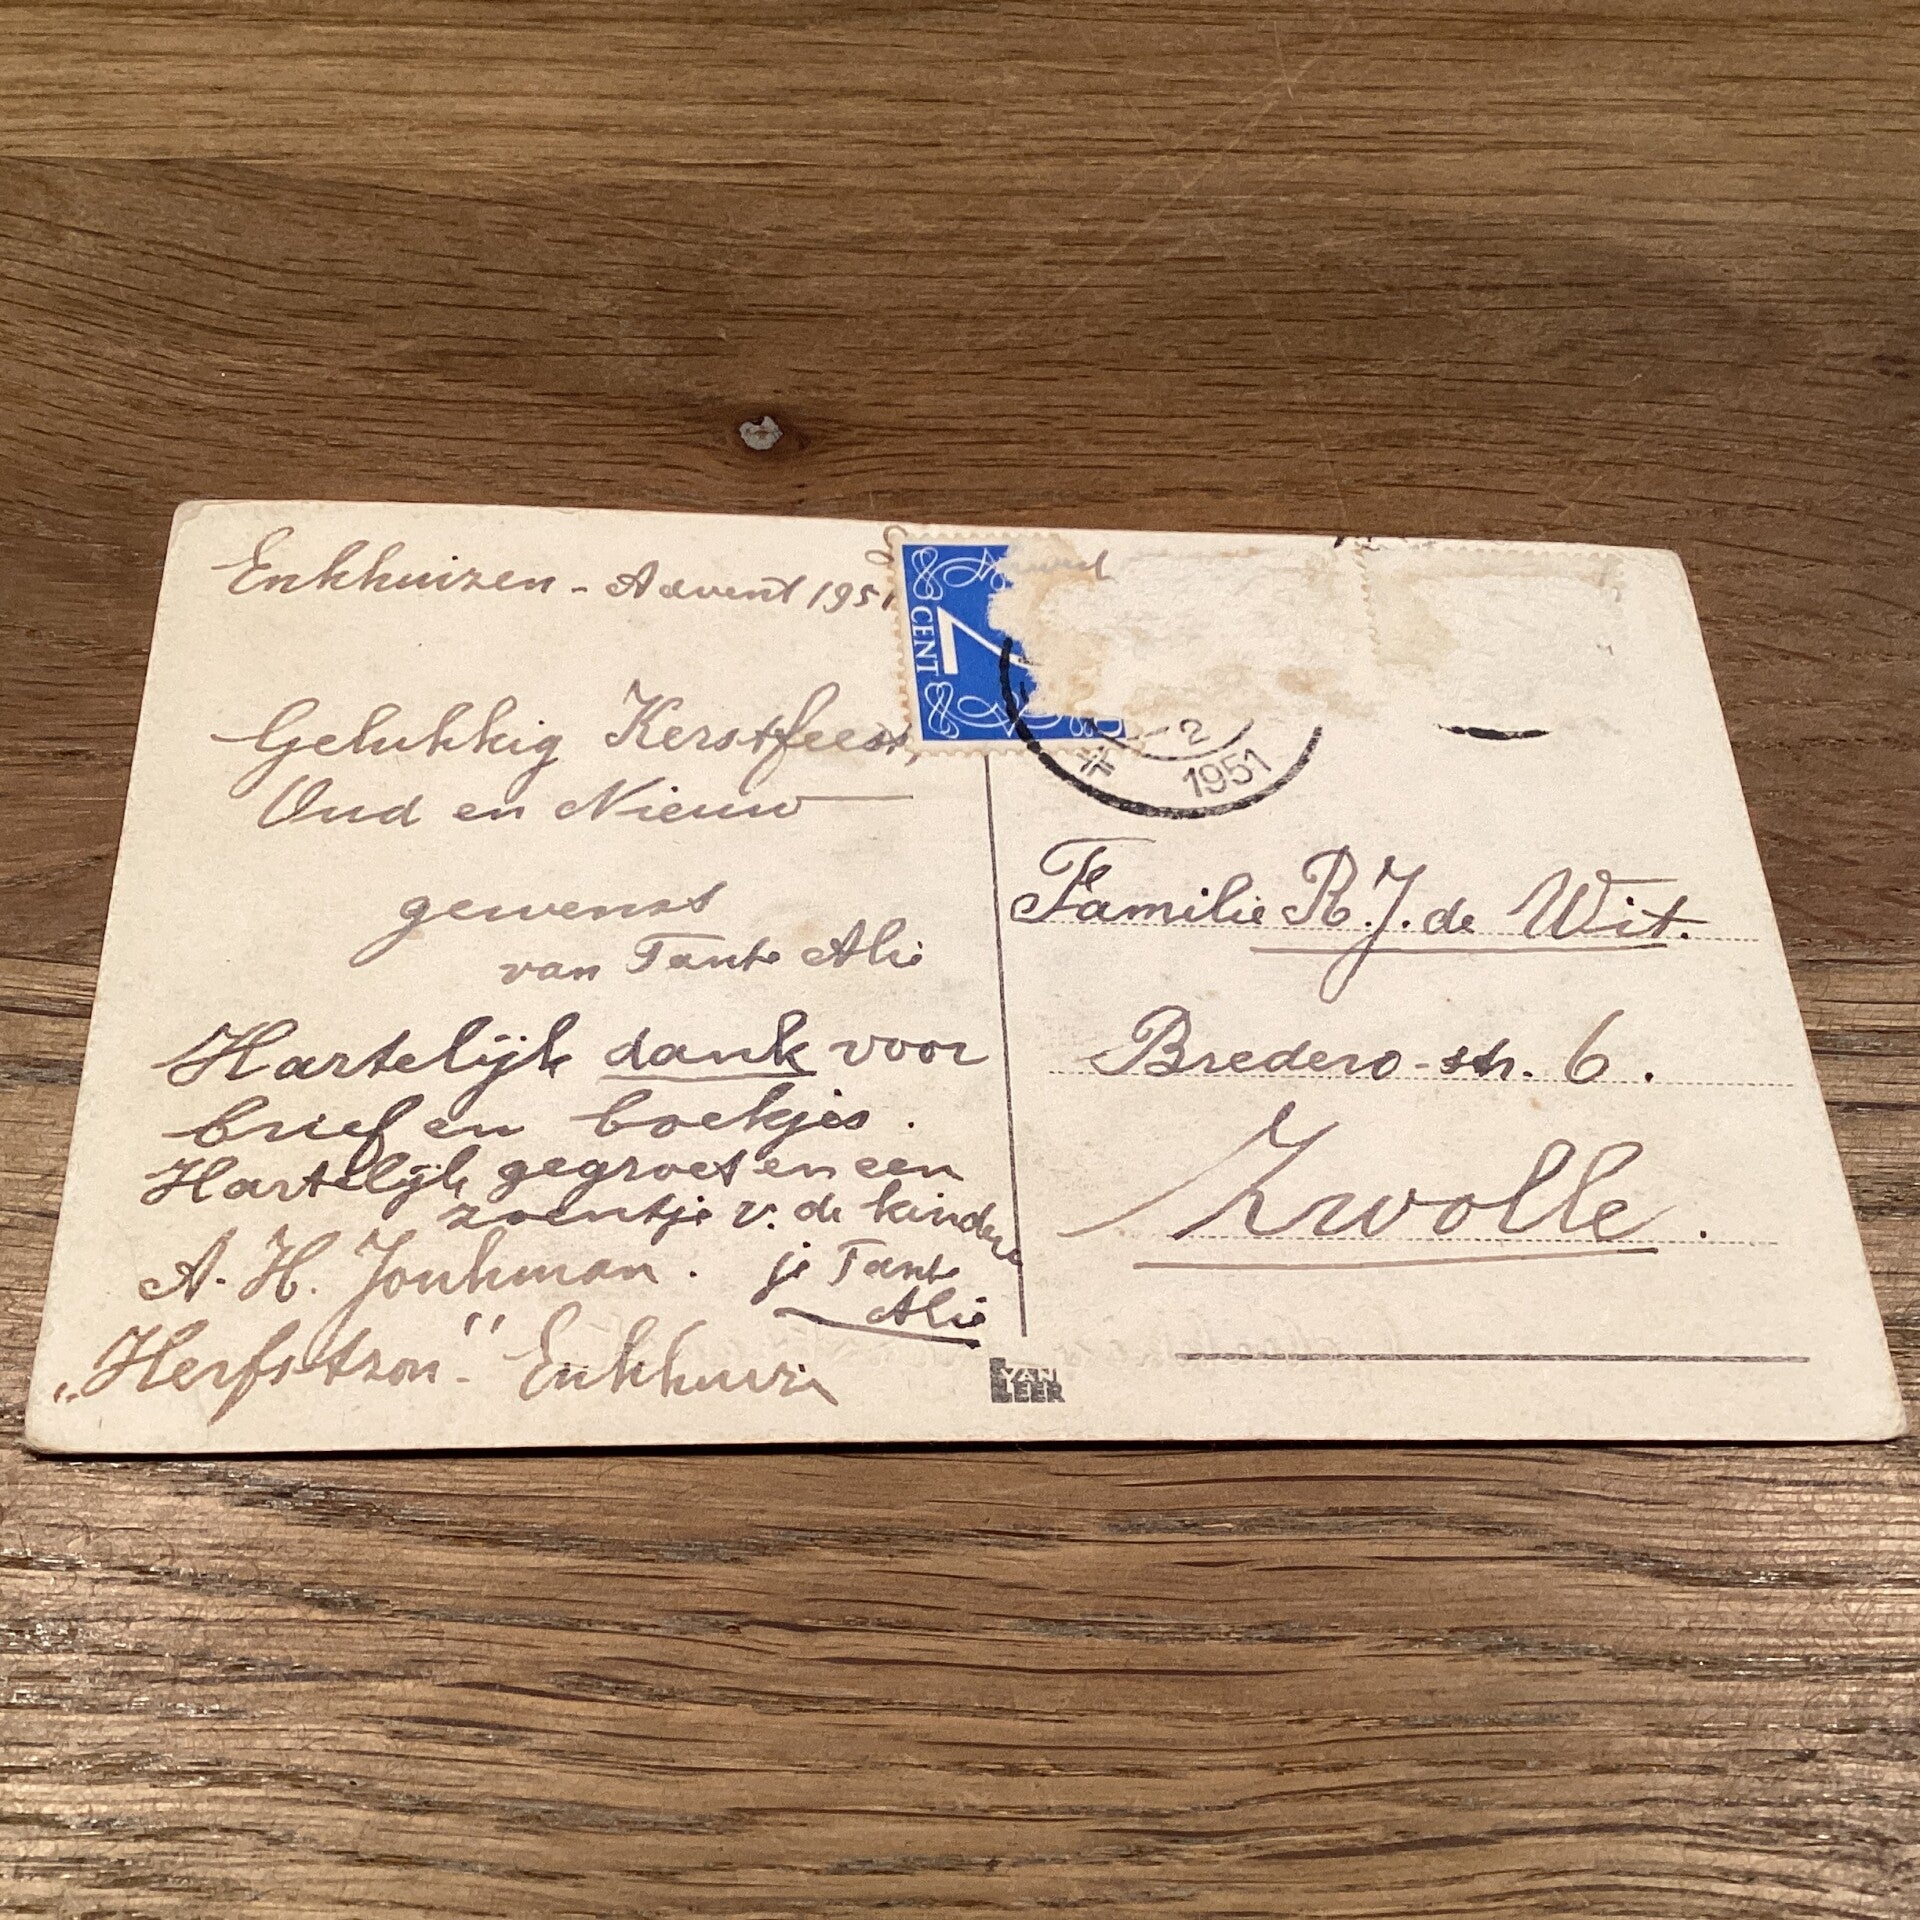 Enkhuizen - Advent 1951
Gelukkig Kerstfeest,
Oud en Nieuw
gewenst
van Tante Alie
Hartelijk dank voor
brief en boekjes.
Hartelijk gegroet en een
zoentje v. de kinderen
A. H. Jonkman. je Tante
Alie
"Herfstzon". Enkhuizen
CENT
2
1951
Familie R. J. de Wit.
Bredero-str. 6.
Zwolle.
VAN
LEER